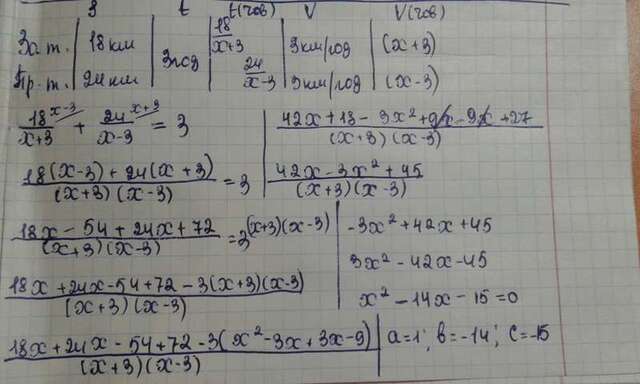 S t t(чов) V V(чов)
За т. 18 км 3 год 18/(x+3) 3 км/год (x+3)
Пр. т. 24 км 24/(x-3) 3 км/год (x-3)
18^(x-3)/(x+3) + 24^(x+3)/(x-3) = 3
(18(x-3)+24(x+3))/((x+3)(x-3)) = 3
(18x-54+24x+72)/((x+3)(x-3)) = 3(x+3)(x-3)
(18x+24x-54+72-3(x+3)(x-3))/((x+3)(x-3))
(18x+24x-54+72-3(x²-3x+3x-9))/((x+3)(x-3))
(42x+18-3x²+9x-9x+27)/((x+3)(x-3))
(42x-3x²+45)/((x+3)(x-3))
-3x²+42x+45
3x²-42x-45
x²-14x-15=0
a=1; b=-14; c=-15